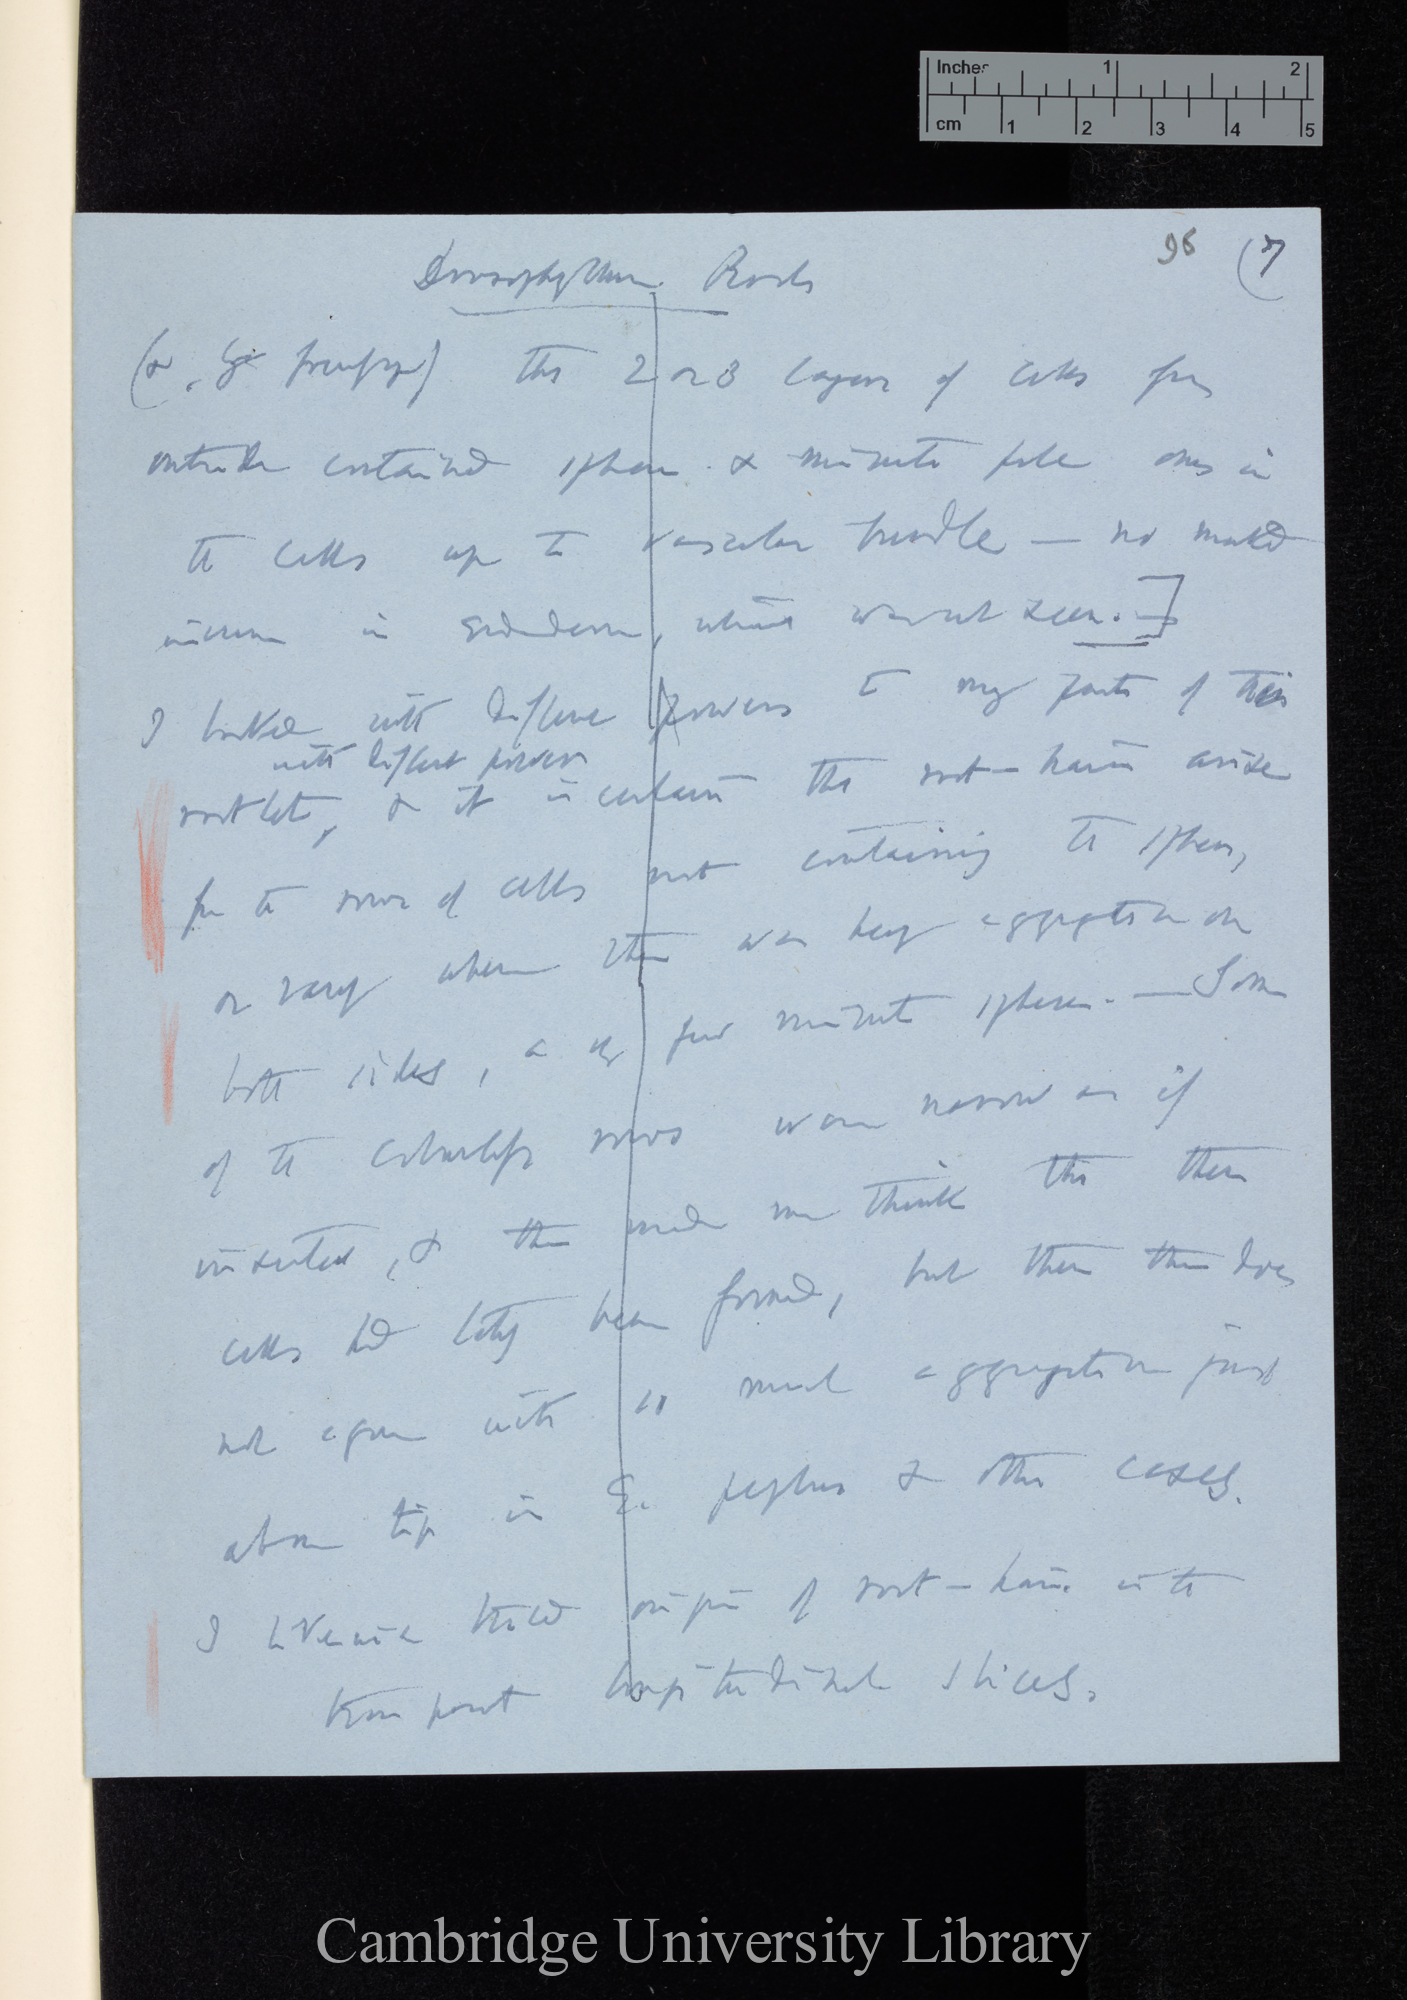 Inches 1 2
cm 1 2 3 4 5
98 (7
Drosophyllum Roots
the 2 or 3 layers of cells from
outside contained spheres & minute pale ones in
the cells up to vascular bundle — no marked
increase in endoderm, which was not seen.—]
I looked with different powers to many parts of this
with different powers
rootlets, & it is certain the root-hairs arise
from the rows of cells not containing the spheres,
or rarely where there was heavy aggregation on
both sides, a very few minute spheres. — Some
of the colourless rows were narrow as if
inserted, & this made me think that these
cells had lately been formed, but then this does
not agree with so much aggregation just
above tip in E. peplus & other cases.
I likewise traced origin of root-hairs in the
transparent longitudinal slices.
Cambridge University Library